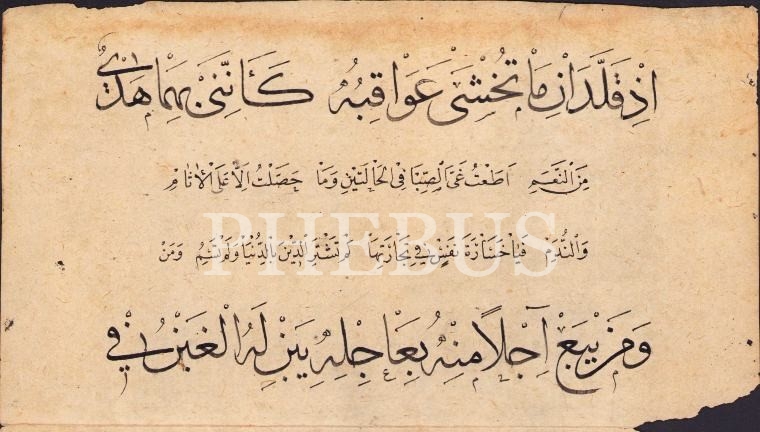 اِذْ قَلَّدَانِيَ مَا تُخْشَى عَوَاقِبُهُ كَأَنَّنِي بِهِمَا هَدْيٌ
مِنَ النَّعَمِ اَطَعْتُ غَيَّ الصِّبَا فِي الْحَالَتَيْنِ وَمَا حَصَلْتُ اِلَّا عَلَى الْاٰثَامِ
PHEBUS
وَالنَّدَمِ فَيَا خَسَارَةَ نَفْسٍ فِي تِجَارَتِهَا لَمْ تَشْتَرِ الدِّيْنَ بِالدُّنْيَا وَلَمْ تَسُمِ وَمَنْ
وَمَنْ يَبِعْ آجِلًا مِنْهُ بِعَاجِلِهِ يَبِنْ لَهُ الْغَبْنُ فِي